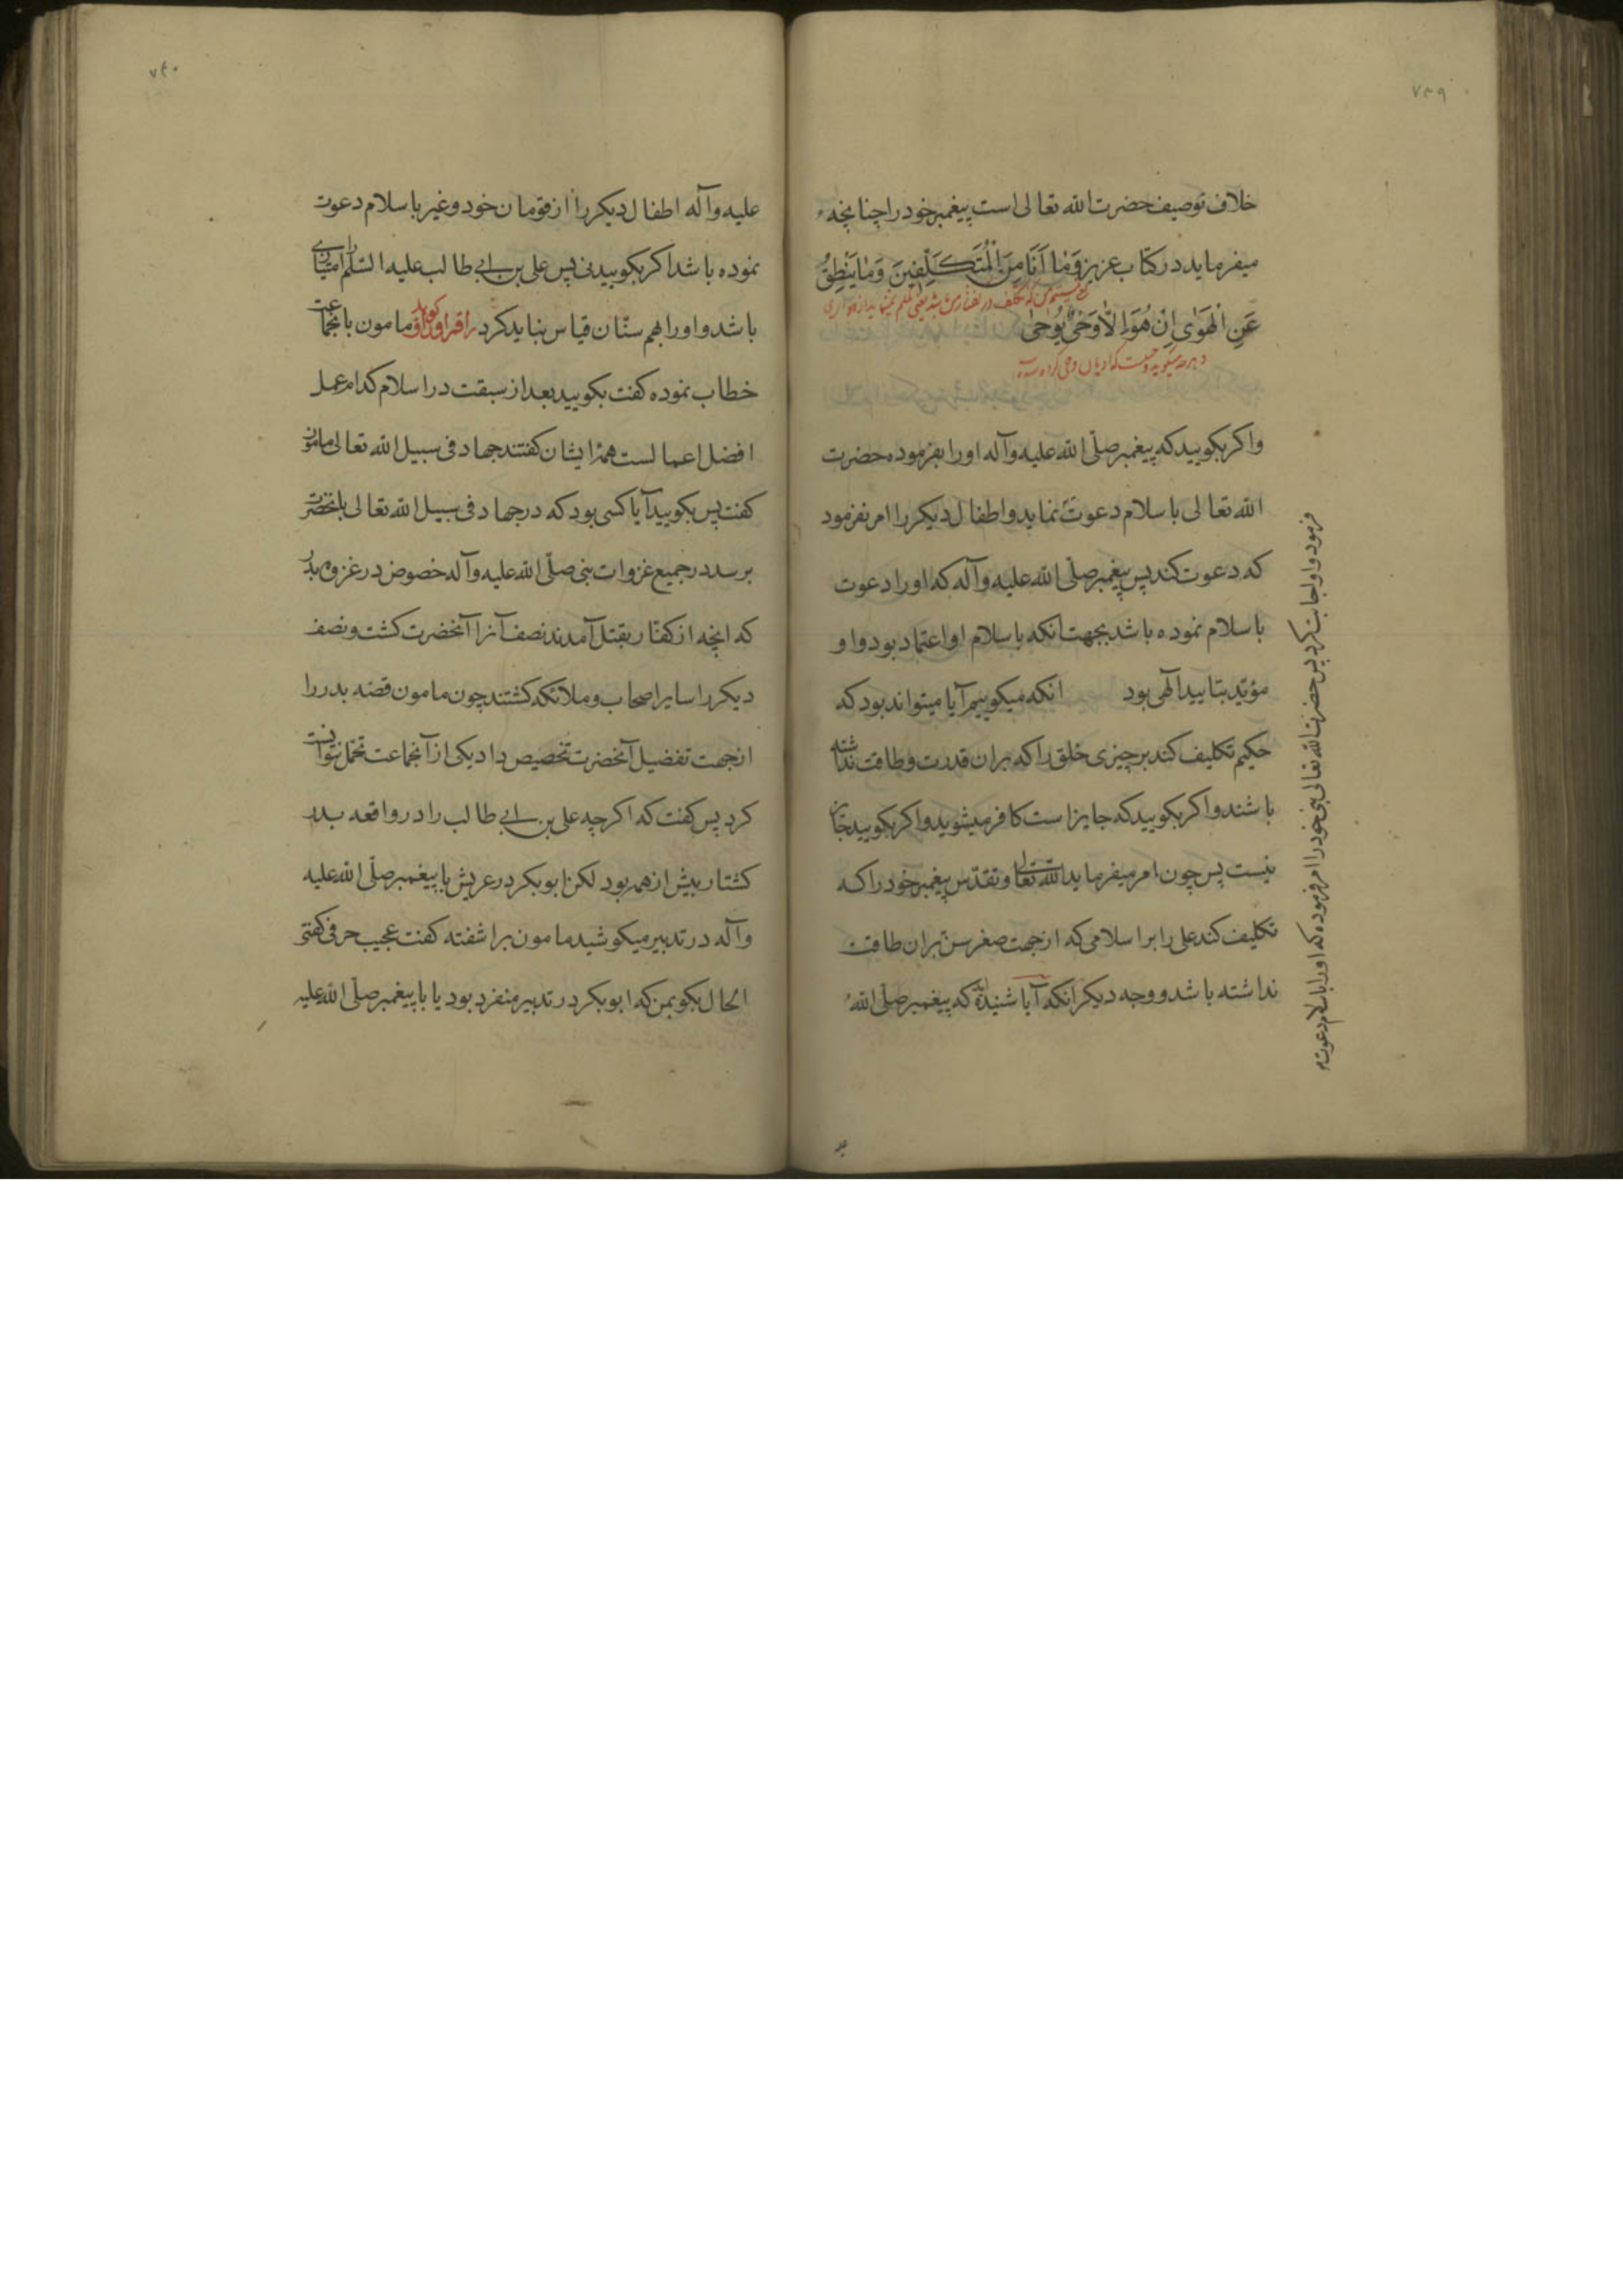 ٧٣٩
خلاف توصیف حضرت الله تعالی است پیغمبر خود را چنانچه
میفرماید در کتاب عزیز وَمٰا اَنَا مِنَ الْمُتَكَلِّفِينَ وَمٰا يَنْطِقُ
عَنِ الْهَوٰى اِنْ هُوَ اِلّاٰ وَحْىٌ يُوحىٰ
واکر بکویید که پیغمبر صلّی الله علیه وآله او را بفرموده حضرت
الله تعالی باسلام دعوت نماید و اطفال دیکر را امر نفرمود
که دعوت کند پس پیغمبر صلّی الله علیه وآله که او را دعوت
باسلام نموده باشد بجهت انکه باسلام او اعتماد بود و او
مؤیّد بتایید آلهی بود انکه میکوییم آیا میتواند بود که
حکیم تکلیف کند بر چیزی خلق را که بران قدرت و طاقت نداشته
باشند و اکر بکویید که جایز است کافر میشوید و اکر بکویید جایز
نیست پس چون امر میفرماید الله تعالی وتقدّس پیغمبر خود را که
تکلیف کند علی را بر اسلامی که از جهت صغر سن بران طاقت
نداشته باشد و وجه دیکر انکه آیا شنیده اید که پیغمبر صلّی الله
فرمود و او اجابت کرد پس حضرت الله تعالی نبی خود را امر فرموده که او را باسلام دعوت
٧٤٠
علیه وآله اطفال دیکر را از قومان خود و غیر باسلام دعوت
نموده باشد اکر بکویید نی پس علی بن ابی طالب علیه السّلام را امتیازی
باشد و او را بهم سنّان قیاس نباید کرد مامون بانجماعت
خطاب نموده کفت بکویید بعد از سبقت در اسلام کدام عمل
افضل اعمالست همهٔ ایشان کفتند جهاد فی سبیل الله تعالی مامون
کفت پس بکویید آیا کسی بود که در جهاد فی سبیل الله تعالی بانحضرت
برسد در جمیع غزوات نبی صلّی الله علیه وآله خصوص در غزوه بدر
که انچه از کفّار بقتل آمدند نصف آنرا آنحضرت کشت و نصف
دیکر را سایر اصحاب و ملائکه کشتند چون مامون قصّه بدر را
از جهت تفضیل آنحضرت تخصیص داد یکی از آنجماعت تحمّل نتوانست
کرد پس کفت که اکرچه علی بن ابی طالب را در واقعه بدر
کشتار بیش از همه بود لکن ابوبکر در عریش با پیغمبر صلّی الله علیه
وآله در تدبیر میکوشید مامون براشفته کفت عجیب حرفی کفتی
الحال بکو بمن که ابوبکر در تدبیر منفرد بود یا با پیغمبر صلّی الله علیه